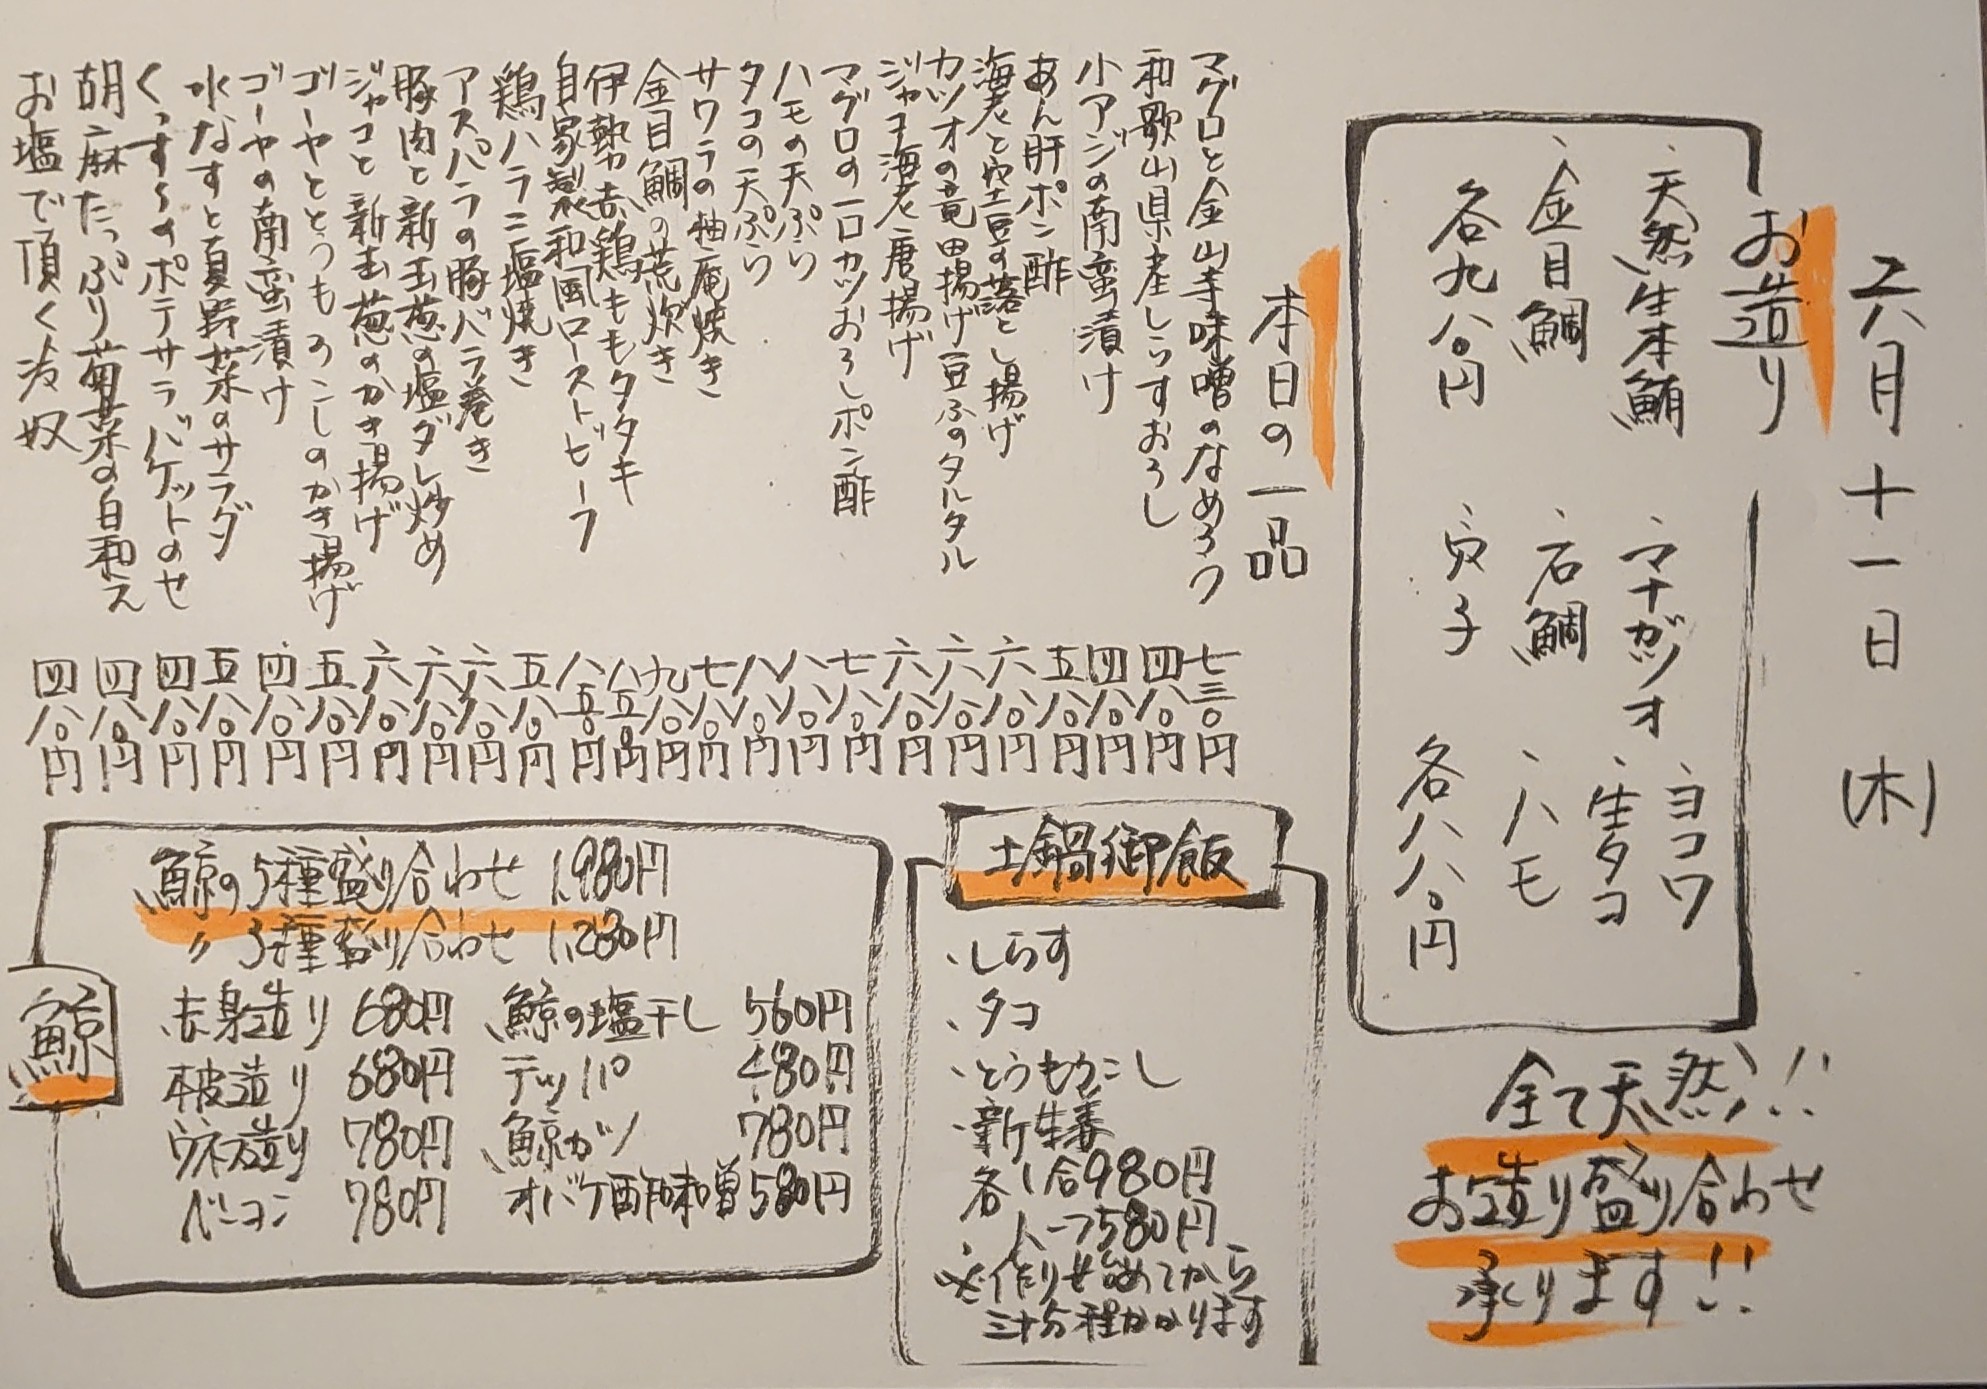 六月十一日(木)
お造り
・天然生本鮪
・マナガツオ
・ヨコワ
・金目鯛
・石鯛
・生タコ
・ハモ
各九八〇円
・真子
各八八〇円
全て天然!!
お造り盛り合わせ
承ります!!
本日の一品
マグロと金山寺味噌のなめろう 七三〇円
和歌山県産しらすおろし 四八〇円
小アジの南蛮漬け 四八〇円
あん肝ポン酢 五八〇円
海老と空豆の落とし揚げ 六八〇円
カツオの竜田揚げ豆ふのタルタル 六八〇円
ジャコ海老唐揚げ 六八〇円
マグロの一口カツおろしポン酢 七八〇円
ハモの天ぷら 八八〇円
タコの天ぷら 八八〇円
サワラの柚庵焼き 七八〇円
金目鯛の荒炊き 九八〇円
伊勢赤鶏ももタタキ 八五〇円
自家製和風ローストビーフ 八五〇円
鶏ハラミ塩焼き 五八〇円
アスパラの豚バラ巻き 六八〇円
豚肉と新玉葱の塩ダレ炒め 六八〇円
ジャコと新玉葱のかき揚げ 六八〇円
ゴーヤととうもろこしのかき揚げ 五八〇円
ゴーヤの南蛮漬け 四八〇円
水なすと夏野菜のサラダ 五八〇円
くんすモのポテサラバケットのせ 四八〇円
胡麻たっぷり菊菜の白和え 四八〇円
お塩で頂く冷奴 四八〇円
土鍋御飯
・しらす
・タコ
・とうもろこし
・新生姜
各1合980円
ハーフ580円
※作り始めてから
三十分程かかります
鯨
鯨の5種盛り合わせ 1,980円
〃 3種盛り合わせ 1,280円
赤身造り 680円
鯨の塩干し 560円
本皮造り 680円
テッパ 480円
ウネス造り 780円
鯨カツ 780円
ベーコン 780円
オバケ酢味噌 580円